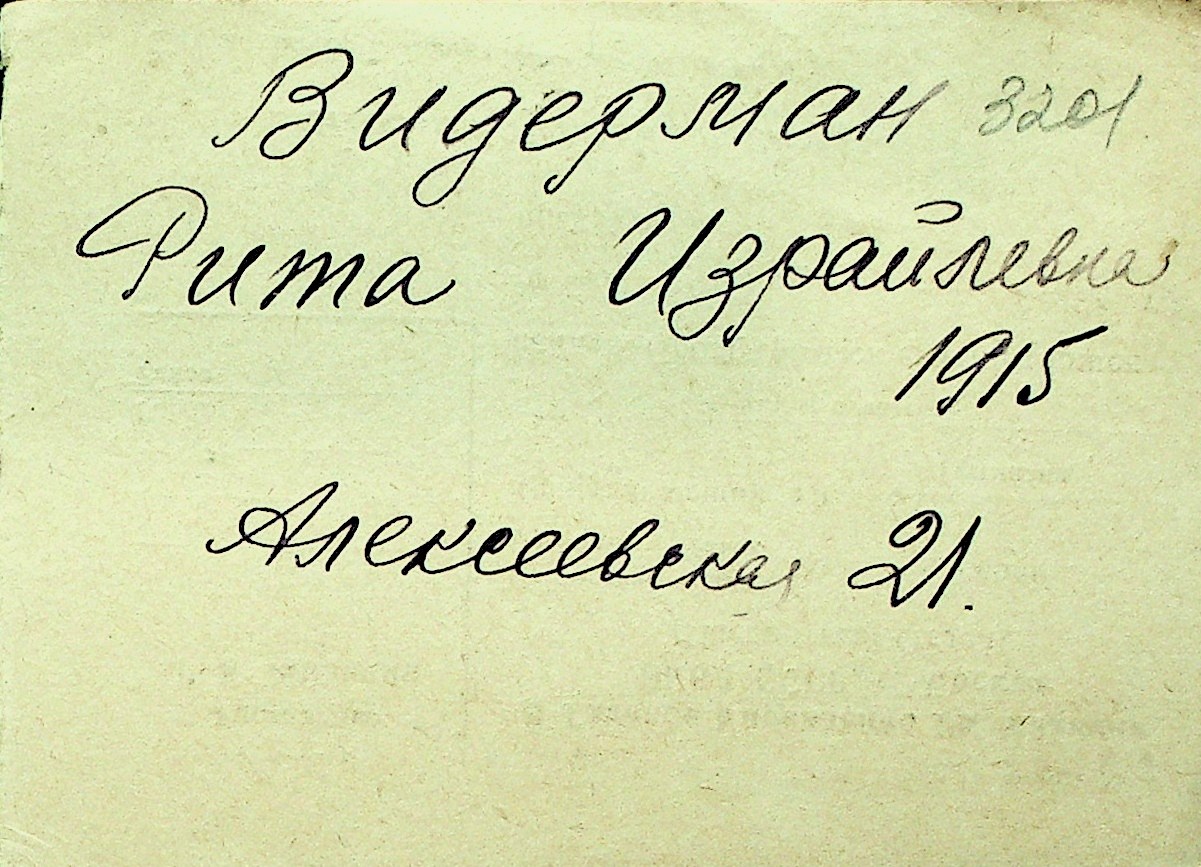 Видерман 3201
Рита Израйлевна
1915
Алексеевская 21.